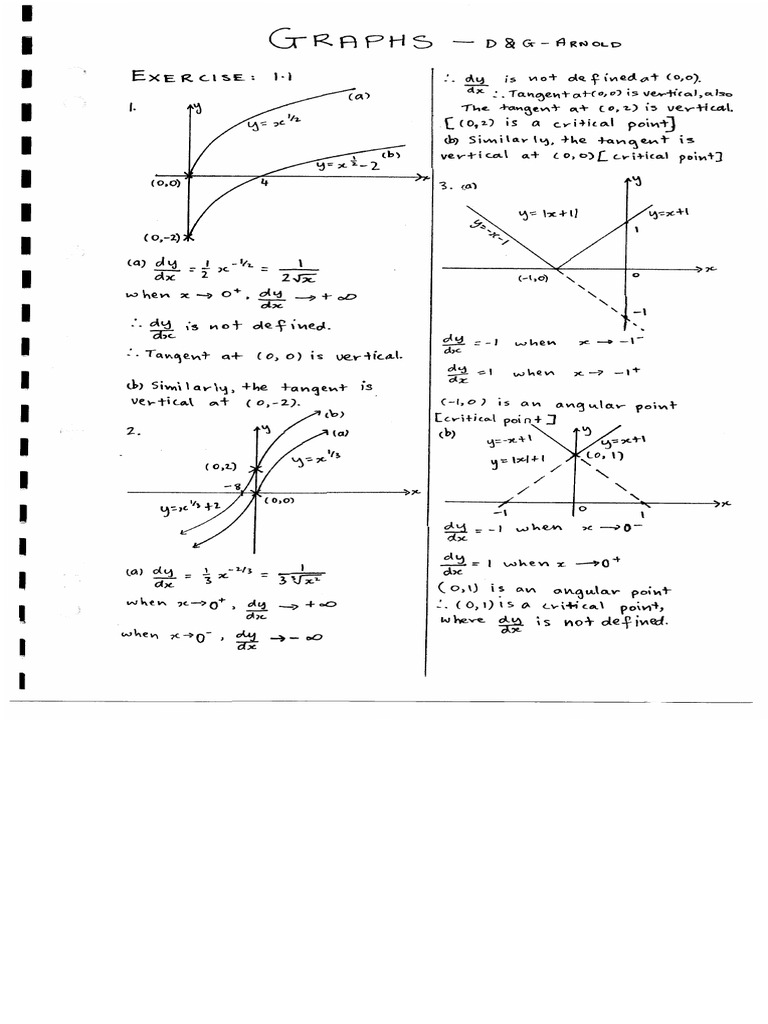 GRAPHS — D & G - ARNOLD
EXERCISE: 1.1
1.
y
(a)
y = x^1/2
(b)
y = x^1/2 - 2
(0,0)
4
x
(0,-2)
(a) dy/dx = 1/2 x^-1/2 = 1/(2√x)
when x → 0⁺, dy/dx → + ∞
∴ dy/dx is not defined.
∴ Tangent at (0, 0) is vertical.
(b) Similarly, the tangent is
vertical at (0,-2).
2.
y
(b)
(a)
(0,2)
y = x^1/3
-8
(0,0)
x
y = x^1/3 + 2
(a) dy/dx = 1/3 x^-2/3 = 1/(3 ³√x²)
when x → 0⁺, dy/dx → + ∞
when x → 0⁻, dy/dx → - ∞
∴ dy/dx is not defined at (0,0).
∴ Tangent at (0,0) is vertical, also
The tangent at (0,2) is vertical.
[(0,2) is a critical point]
(b) Similarly, the tangent is
vertical at (0,0) [critical point]
3. (a)
y
y = |x+1|
y = x+1
y = -x-1
1
(-1,0)
0
x
-1
dy/dx = -1 when x → -1⁻
dy/dx = 1 when x → -1⁺
(-1,0) is an angular point
[critical point]
(b)
y
y = -x+1
y = x+1
y = |x|+1
(0, 1)
-1
0
1
x
dy/dx = -1 when x → 0⁻
dy/dx = 1 when x → 0⁺
(0,1) is an angular point
∴ (0,1) is a critical point,
where dy/dx is not defined.